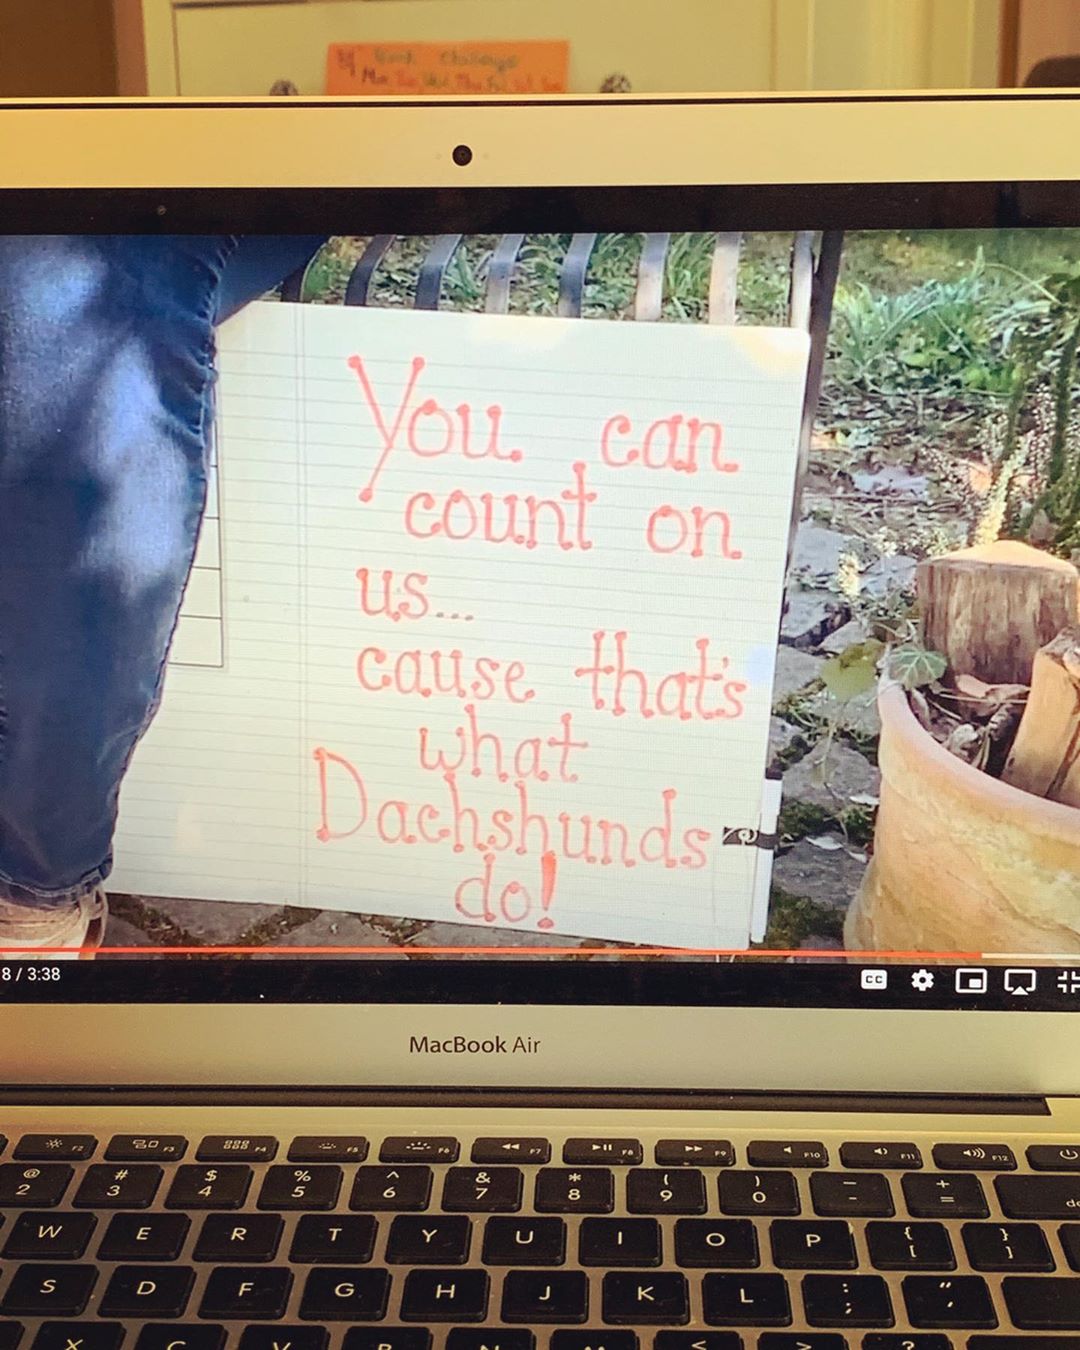 Challenge
You can
count on
us...
cause that's
what
Dachshunds
do!
8 / 3:38
CC
MacBook Air
F2 F3 F4 F5 F6 F7 F8 F9 F10 F11 F12
@ # $ % ^ & * ( ) _ +
2 3 4 5 6 7 8 9 0 - =
W E R T Y U I O P { }
[ ]
S D F G H J K L : "
; '
X C V B N M < > ?